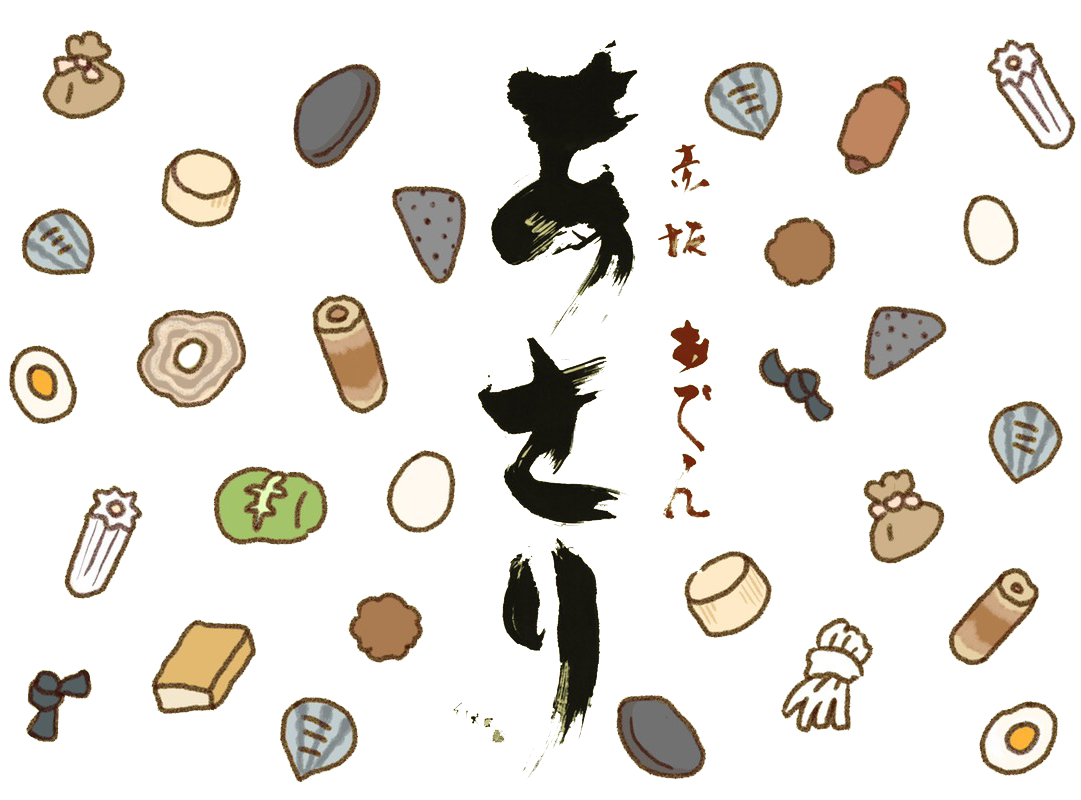 赤坂 おでん
あさり